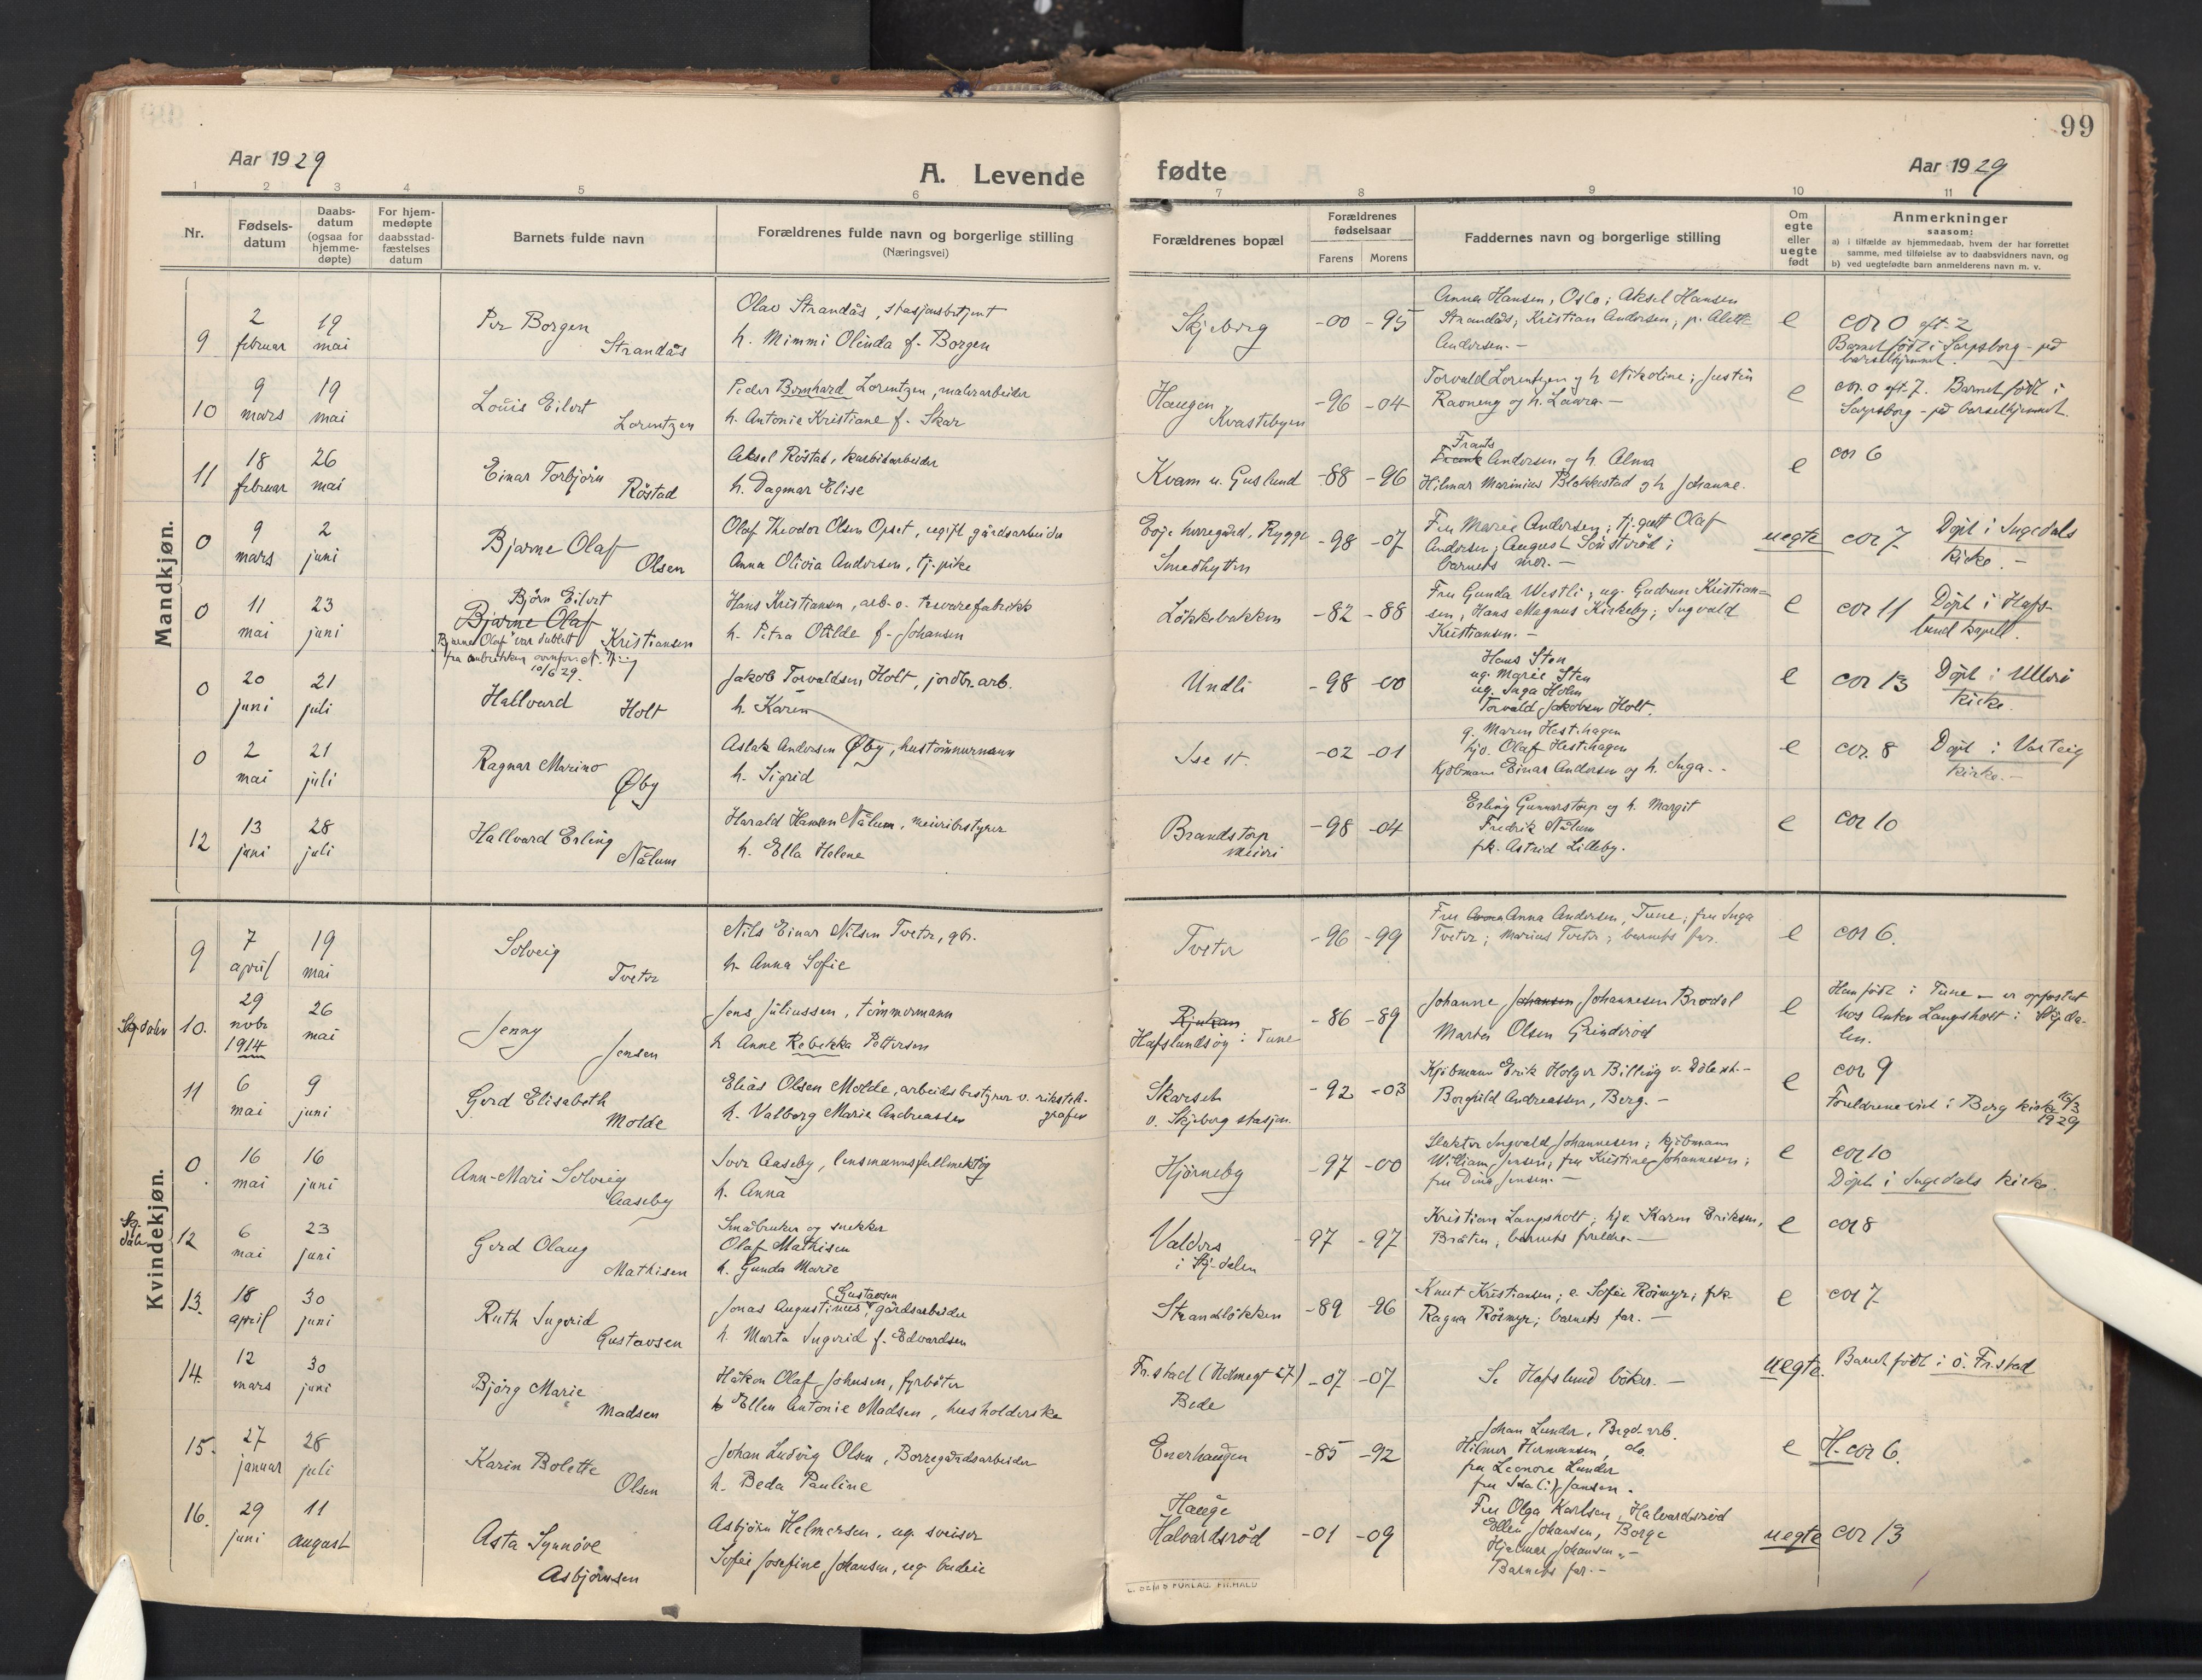 99
Aar 1929
A. Levende fødte
Aar 1929
1 2 3 4 5 6 7 8 9 10 11
Nr.
Fødsels-
datum
Daabs-
datum
(ogsaa for
hjemme-
døpte)
For hjem-
medøpte
daabsstad-
fæstelses
datum
Barnets fulde navn
Forældrenes fulde navn og borgerlige stilling
(Næringsvei)
Forældrenes bopæl
Forældrenes
fødselsaar
Farens Morens
Faddernes navn og borgerlige stilling
Om
egte
eller
uegte
født
Anmerkninger
saasom:
a) i tilfælde av hjemmedaab, hvem der har forrettet
samme, med tilføielse av to daabsvidners navn, og
b) ved uegtefødte barn anmelderens navn m. v.
Mandkjøn.
9
2 februar
19 mai
Per Borgen
Strandås
Olav Strandås, stasjonsbetjent
h. Mimmi Olinda f. Borgen
Skjeberg
-00 -95
Anna Hansen, Oslo; Aksel Hansen
Strandås; Kristian Andersen; p. Alette
Andersen.-
e
cor 0 eft. 2
Barnet født i Sarpsborg - på
barselhjemmet.
10
9 mars
19 mai
Louis Eilert
Lorentzen
Peder Bernhard Lorentzen, malerarbeider
h. Antonie Kristiane f. Skar
Haugen
Kvastebyen
-96 -04
Torvald Lorentzen og h. Nikoline; Justin
Ravneng og h. Laura.-
e
cor. 0 eft. 7. Barnet født i
Sarpsborg - på barselhjemmet.
11
18 februar
26 mai
Einar Torbjørn
Röstad
Aksel Röstad, karbidarbeider
h. Dagmar Elise
Kvam u. Guslund
-88 -96
Frants
Frank Andersen og h. Alma
Hilmar Marinius Blakkestad og h. Johanne.
e
cor 6
0
9 mars
2 juni
Bjarne Olaf
Olsen
Olaf Theodor Olsen Opset, ugift gårdsarbeider
Anna Olivia Andersen, tj. pike
Evje herregård, Rygge
Smedhytten
-98 -07
Fru Marie Andersen; tj. gutt Olaf
Andersen; August
barnets mor.-
uegte
cor 7
Døpt i Ingedals
kirke.-
0
11 mai
23 juni
Björn Eilert
Bjarne Olaf
Kristiansen
"Bjarne Olaf" var dublett
10/6 29.
Hans Kristiansen, arb. o. trevarefabrikk
h. Petra Otilde f. Johansen
Løkkebakken
-82 -88
Fru Gunda Westli; ug. Gudrun Kristian-
sen; Hans Magnus Kirkeby; Ingvald
Kristiansen.-
e
cor 11
Døpt i Hafs-
lund kapell.
0
20 juni
21 juli
Hallvard
Holt
Jakob Torvaldsen Holt, jordbr. arb.
h. Karen
Undli
-98 -00
Hans Sten
ug. Marie Sten
ug. Inga Holm
Torvald Jakobsen Holt.
e
cor 13
Døpt i Ullerö
kirke.
0
2 mai
21 juli
Ragnar Marino
Øby
Aslak Andersen Øby, hustömmermann
h. Sigrid
Ise st.
-02 -01
g. Maren Hestehagen
hjv. Olaf Hestehagen
Kjøbmann Einar Andersen og h. Inga.-
e
cor. 8
Døpt i Varteig
kirke.-
12
13 juni
28 juli
Hallvard Erling
Nålum
Harald Hansen Nålum, meieribestyrer
h. Ella Helene
Brandstorp
meieri
-98 -04
Erling Gunnarstorp og h. Margit
Fredrik Nålum
frk. Astrid Lilleby.
e
cor 10
Kvindekjøn.
9
7 april
19 mai
Solveig
Tveter
Nils Einar Nilsen Tveter, gbr.
h. Anna Sofie
Tveter
-96 -99
Fru Anna Andersen, Tune; fru Inga
Tveter; Marius Tveter; barnets far.
e
cor 6.
Skjdalen 10.
29 novbr 1914
26 mai
Jenny
Jensen
Jens Juliussen, tömmermann
h. Anne Rebekka Pettersen
Rjukan
Hafslundsøy i Tune
-86 -89
Johanne Johansen Johannesen Brødsl
Marten Olsen Grindsrød
e
Hun født i Tune - er oppfostret
hos Anton Langsholt i Skjeda-
len.
11
6 mai
9 juni
Gerd Elisabeth
Molde
Elias Olsen Molde, arbeidsbestyrer v. rikstele-
grafen
h. Valborg Marie Andreassen
Skarset
v. Skjeberg stasjon
-92 -03
Kjøbmann Erik Holger Billing v. Döle st.-
Borghild Andreassen, Berg.-
e
cor 9
Foreldrene viet i Berg kirke 16/3
1929
0.
16 mai
16 juni
Ann-Mari Solveig
Aaseby
Iver Aaseby, lensmannsfullmektig
h. Anna
Hjörneby
-97 -00
Slakter Ingvald Johannesen; kjøbmann
William Jensen; fru Kristine Johannesen;
fru Dina Jensen.-
e
cor 10
Døpt i Ingedals kirke.
Sk.
dalen 12
6 mai
23 juni
Gerd Olaug
Mathisen
Småbruker og snekker
Olaf Mathisen
h. Gunda Marie
Valders
i Skj-dalen
-97 -97
Kristian Langsholt; hjv. Karen Eriksen,
Bråten; barnets foreldre.-
e
cor 8
13.
18 april
30 juni
Ruth Ingerid
Gustavsen
(Gustavsen
Jonas Augustinius, gårdsarbeider
h. Marta Ingerid f. Edvardsen
Strandløkken
-89 -96
Knut Kristiansen; e. Sofie Rösmyr; frk.
Ragna Rösmyr; barnets far.-
e
cor 7
14.
12 mars
30 juni
Björg Marie
Madsen
Håkon Olaf Johnsen, fyrböter
Ellen Antonie Madsen, husholderske
Fr.stad (Holmegt 27)
Bede
-07 -07
Se Hafslund böker.-
uegte.
Barnet født i ö. Fr.stad
15.
27 januar
28 juli
Karin Bolette
Olsen
Johan Ludvig Olsen, Borregårdsarbeider
h. Beda Pauline
Enerhaugen
-85 -92
Johan Lunder, Brgd. arb.
Hilmer Hermansen, do.
fru Leonore Lunder
fru Jansen.
e
H. cor 6.
16.
29 juni
11 august
Asta Synnöve
Asbjörnsen
Asbjörn Helmersen, ug. sveiser
Sofie Josefine Johansen, ug. budeie
Hauge
Halvardsröd
-01 -09
Fru Olga Karlsen, Halvardsröd
Ellen Johansen, Borge
Hjelmar Johansen -"-
Barnets far.-
uegte
cor 13
FORLAG, FR.HALD